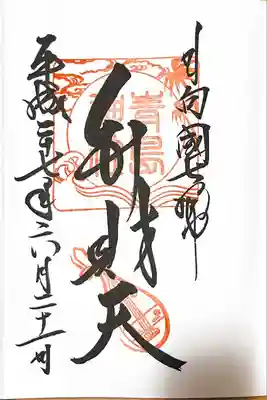 日向國七福神
青島
神社
弁財天
平成二十七年六月二十一日